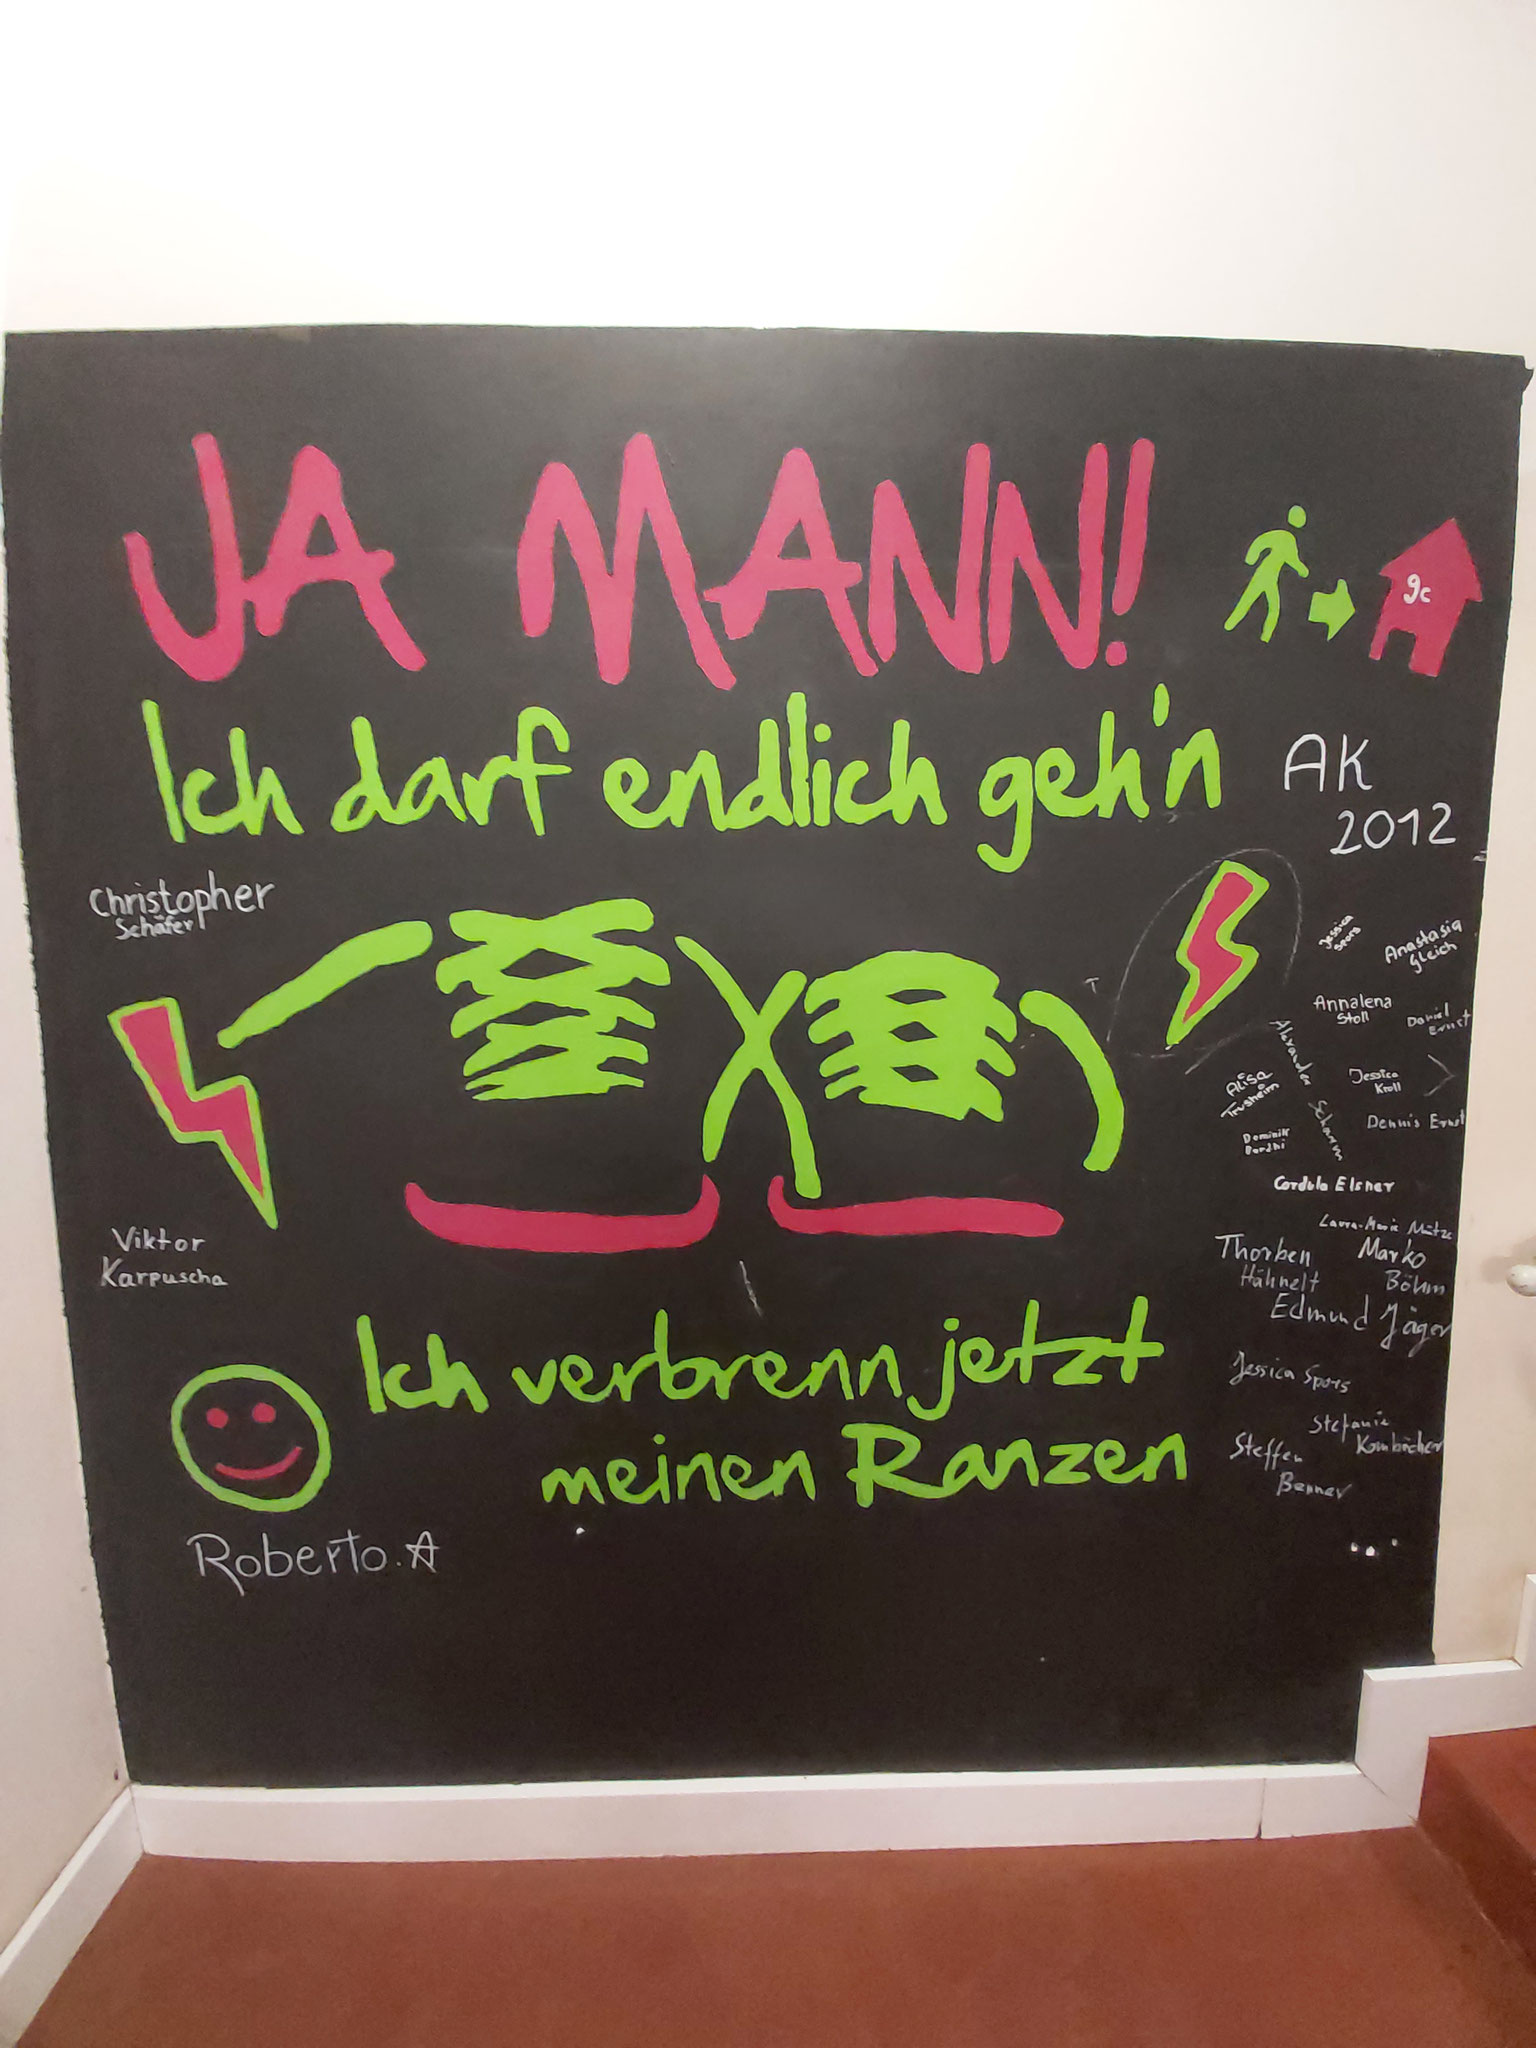 JA MANN!
9c
Ich darf endlich geh'n
AK
2012
Christopher
Schäfer
Jessica
Spors
Anastasia
Gleich
Annalena
Stoll
Daniel
Ernst
Alexander Scharm
Alisa
Trusheim
Jessica
Kroll
Dennis Ernst
Dominik
Cordula Elsner
Laura-Marie Mütze
Viktor
Karpuscha
Thorben
Hähnelt
Marko
Böhm
Edmund Jäger
Ich verbrenn jetzt
meinen Ranzen
Jessica Spors
Stefanie
Steffen
Benner
Roberto. A
...